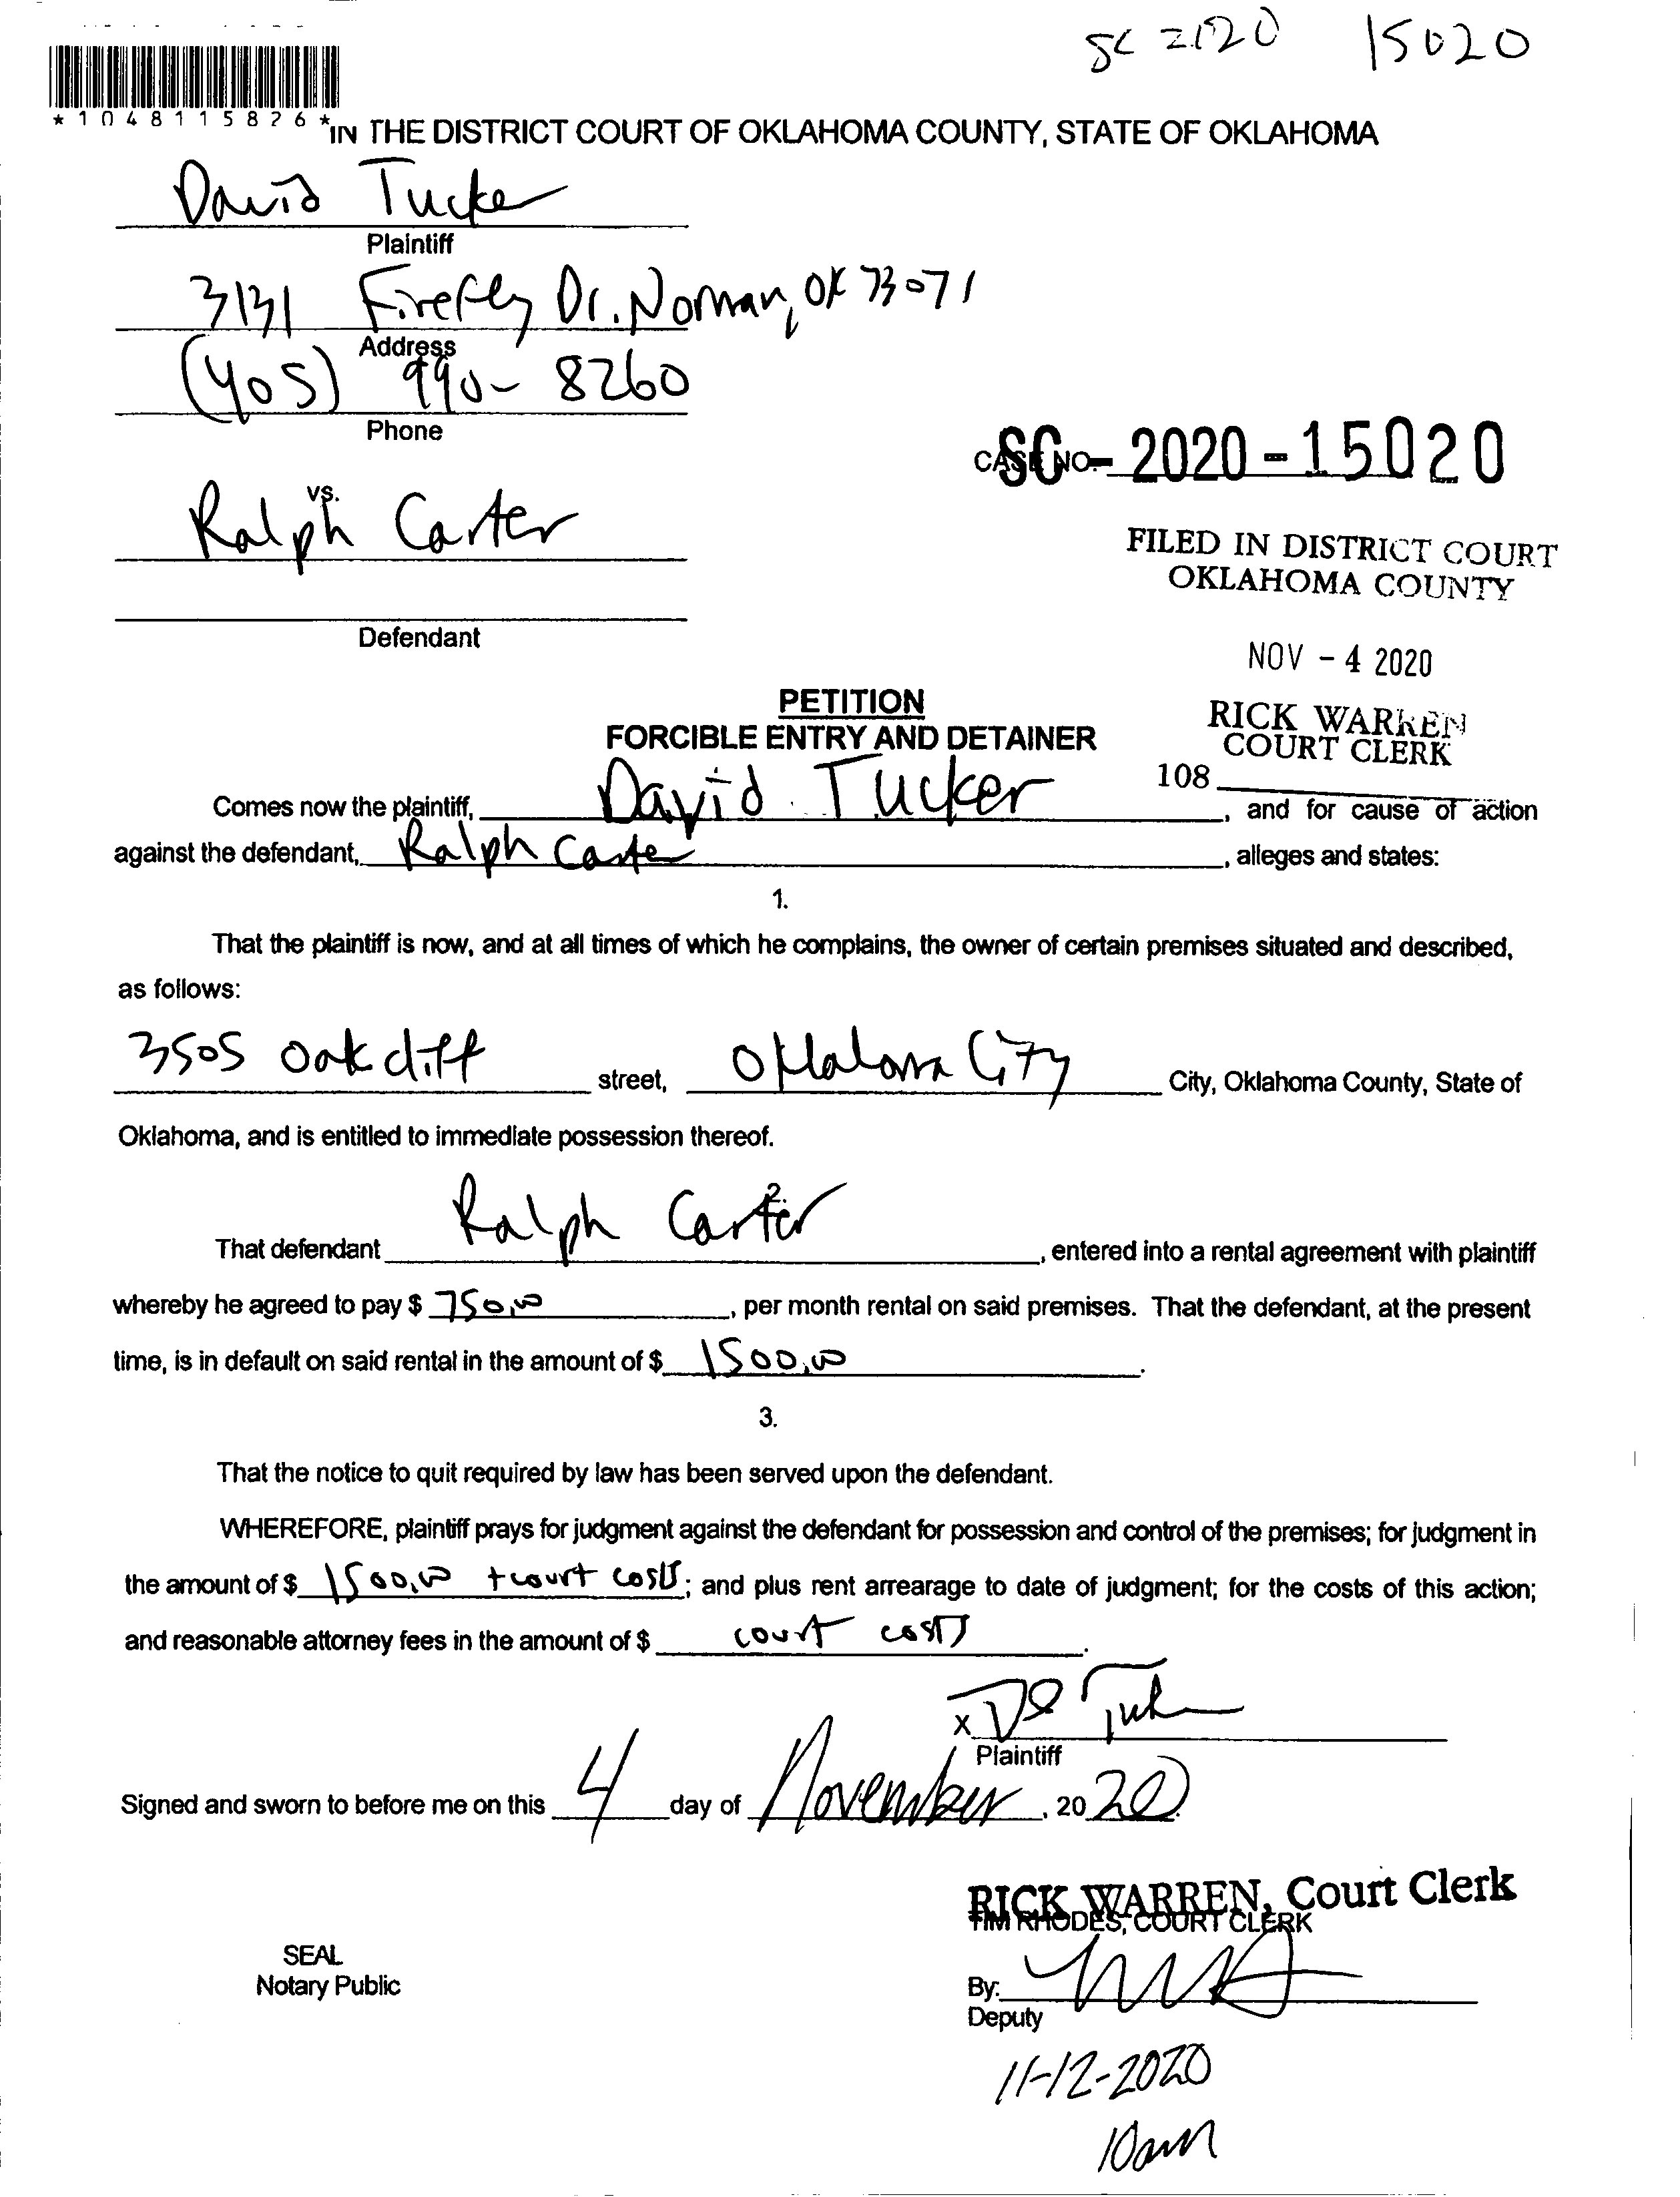 SC 2020 15020
*1048115826*
IN THE DISTRICT COURT OF OKLAHOMA COUNTY, STATE OF OKLAHOMA
David Tucker
Plaintiff
3131 Firefly Dr. Norman, OK 73071
Address
(405) 990-8260
Phone
CASE NO. SC-2020-15020
vs.
Ralph Carter
FILED IN DISTRICT COURT
OKLAHOMA COUNTY
Defendant
NOV - 4 2020
PETITION
FORCIBLE ENTRY AND DETAINER
RICK WARREN
COURT CLERK
108
Comes now the plaintiff, David Tucker, and for cause of action
against the defendant, Ralph Carter, alleges and states:
1.
That the plaintiff is now, and at all times of which he complains, the owner of certain premises situated and described,
as follows:
3505 Oakcliff street, Oklahoma City City, Oklahoma County, State of
Oklahoma, and is entitled to immediate possession thereof.
2.
That defendant Ralph Carter, entered into a rental agreement with plaintiff
whereby he agreed to pay $ 750.00, per month rental on said premises. That the defendant, at the present
time, is in default on said rental in the amount of $ 1500.00.
3.
That the notice to quit required by law has been served upon the defendant.
WHEREFORE, plaintiff prays for judgment against the defendant for possession and control of the premises; for judgment in
the amount of $ 1500.00 + court costs; and plus rent arrearage to date of judgment; for the costs of this action;
and reasonable attorney fees in the amount of $ court costs.
X
Plaintiff
Signed and sworn to before me on this 4 day of November, 2020.
RICK WARREN, Court Clerk
TIM RHODES, COURT CLERK
SEAL
Notary Public
By:
Deputy
11-12-2020
10am